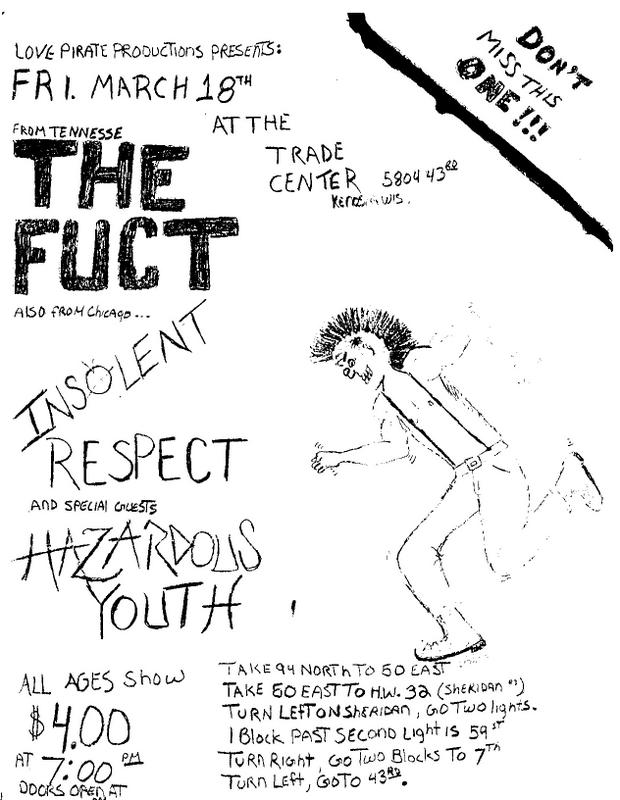 LOVE PIRATE PRODUCTIONS PRESENTS:
FRI. MARCH 18TH
DON'T
MISS THIS
ONE!!!
FROM TENNESSE
AT THE
TRADE
CENTER 5804 43RD
WIS.
THE
FUCT
ALSO FROM CHICAGO...
INSOLENT
RESPECT
AND SPECIAL GUESTS
HAZARDOUS
YOUTH
ALL AGES SHOW
$4.00
AT 7:00 PM
DOORS OPEN AT
TAKE 94 NORTH TO 50 EAST
TAKE 50 EAST TO H.W. 32 (SHERIDAN RD)
TURN LEFT ON SHERIDAN, GO TWO lights.
1 Block PAST SECOND LIGHT IS 59ST
TURN RIGHT, GO TWO Blocks TO 7TH
TURN LEFT, GO TO 43RD.